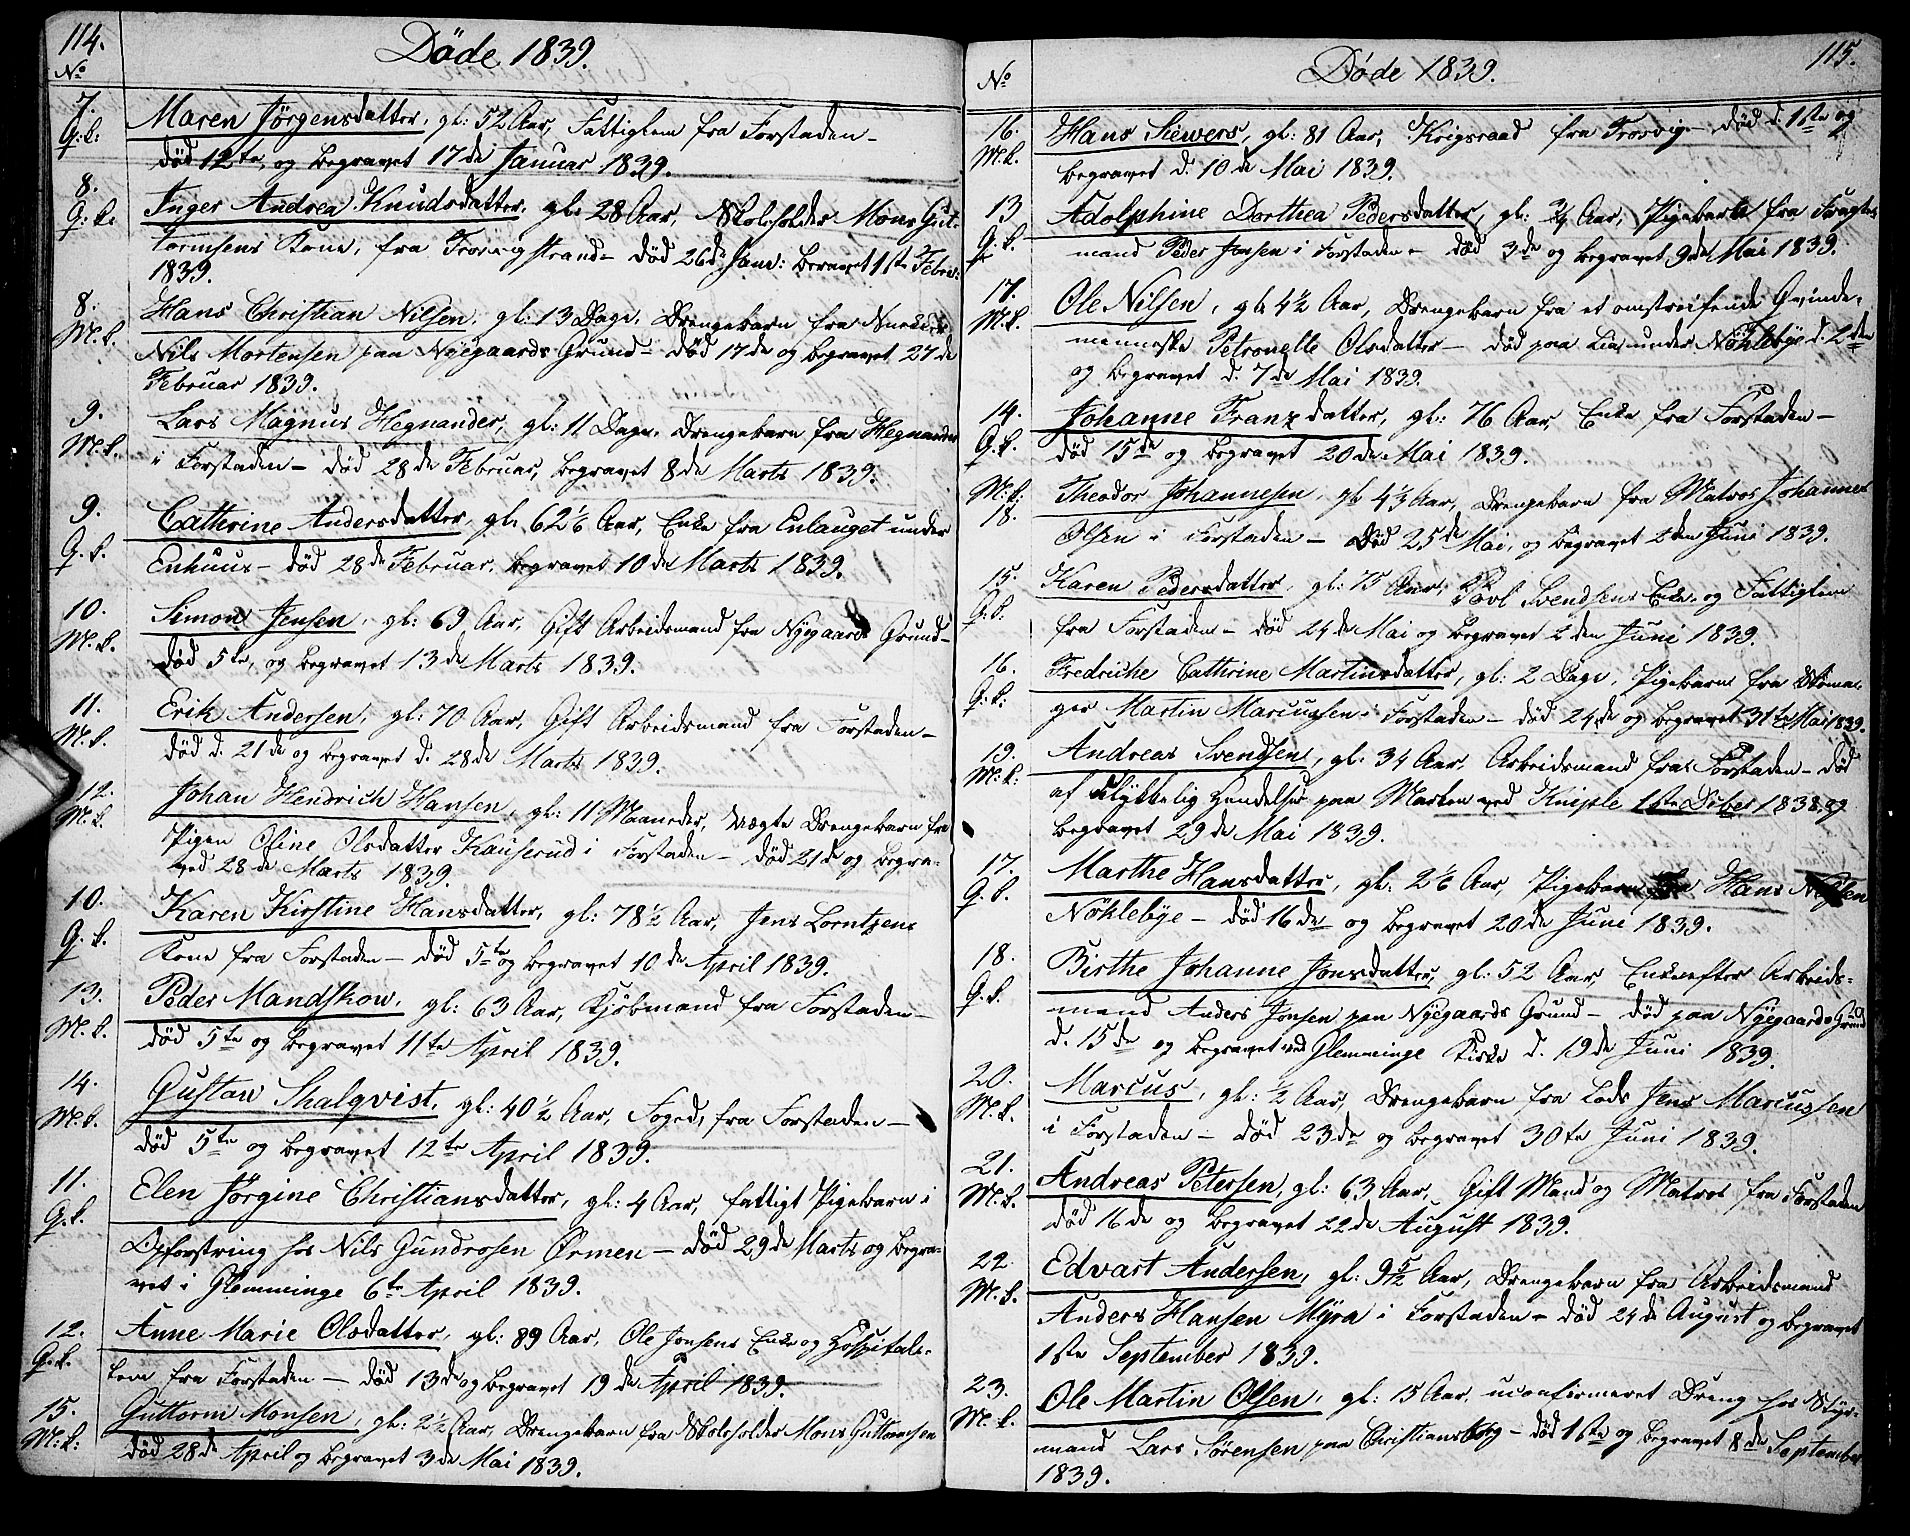 114.
Døde 1839.
No
7. Maren Jörgensdatter, gl: 52 Aar, Fattiglem fra Forstaden –
Q: k: død 12te, og begravet 17de Januar 1839.
8. Inger Andrea Knudsdatter, gl: 28 Aar, Skoleholder Mons Gut-
Q: k. tormsens Kone, fra Trosvigstrand – død 26de Janr: beravet 1ste Febru:
1839.
8. Hans Christian Nilsen, gl: 13 Dage, Drengebarn fra
M. k. Nils Mortensen paa Nÿegaards Grund – død 17de og begravet 27de
Februar 1839.
9. Lars Magnus Hegnander, gl: 11 Dage, Drengebarn fra Hegnander
M. k. i Forstaden – død 28de Februar, begravet 8de Marts 1839.
9. Cathrine Andersdatter, gl: 62 1/6 Aar, Enke fra Enlauget under
Q. k. Enhuus – død 28de Februar, begravet 10de Marts 1839.
10. Simon Jensen, gl: 69 Aar, Gift Arbeidsmand fra Nÿegaards Grund –
M. k. død 5te, og begravet 13de Marts 1839.
11. Erik Andersen, gl: 70 Aar, Gift Arbeidsmand fra Forstaden –
M. k. død d. 21de og begravet d. 28de Marts 1839.
12. Johan Hendrich Hansen, gl: 11 Maaneder, uægte Drengebarn fra
M. k. Pigen Oline Olsdatter Kauserud i Forstaden – død 21de og begra-
ved 28de Marts 1839.
10. Karen Kirstine Hansdatter, gl: 78 1/2 Aar, Jens Lorntzens
Q. k. Kone fra Forstaden – død 5te og begravet 10de April 1839.
13. Peder Mandskow, gl: 63 Aar, Kjöbmand fra Forstaden –
M. k. død 5te og begravet 11te April 1839.
14. Gustav Thalqvist, gl: 40 1/2 Aar, Foged, fra Forstaden –
M. k. død 5te og begravet 12te April 1839.
11. Elen Jörgine Christiansdatter, gl: 4 Aar, fattigt Pigebarn i
Q. k. Opfostring hos Nils Gundrosen Ørmen – død 29de Marts og begra-
vet i Glemminge 6te April 1839.
12. Anne Marie Olsdatter, gl: 89 Aar, Ole Jonsens Enke og Hospitals-
Q. k. lem fra Forstaden – død 13de og begravet 19de April 1839.
15. Guttorm Monsen, gl: 2 1/2 Aar, Drengebarn fra Skoleholder Mons Guttormsen
M: k: død 28de April og begravet 3de Mai 1839.
115.
Døde 1839.
No
16. Hans Siewers, gl: 81 Aar, Krigsraad fra Trosvig – død d. 1ste og
M. k. begravet d. 10de Mai 1839.
13 Adolphine Dorthea Pedersdatter, gl: 3/4 Aar, Pigebarn fra
Q. k. mand Peder Jensen i Forstaden – død 3de og begravet 9de Mai 1839.
17. Ole Nilsen, gl: 4 1/2 Aar, Drengebarn fra et omstreifende Qvinde-
M. k. menneske Petronelle Olsdatter – død paa Lia under Nöhlebÿe d. 2den
og begravet d. 7de Mai 1839.
14. Johanne Franzdatter, gl: 76 Aar, Enke fra Forstaden –
Q. k. død 15de og begravet 20de Mai 1839.
M. k: Theodor Johannesen, gl: 4 1/3 Aar, Drengebarn fra Matros Johannes
18. Olsen i Forstaden – død 25de Mai, og begravet 2den Juni 1839.
15. Karen Pedersdatter, gl: 75 Aar, Povl Svendsens Enke, og Fattiglem
Q. k: fra Forstaden – død 24de Mai og begravet 2den Juni 1839.
16. Fredriche Cathrine Martinsdatter, gl: 2 Dage, Pigebarn fra Skoma-
Q. k: ger Martin Marcussen i Forstaden – død 24de og begravet 31te Mai 1839.
19. Andreas Svendsen, gl: 34 Aar, Arbeidsmand fra Forstaden – død
M. k: af ulykkelig Hendelse paa Marken ved Kniple 1ste Dcber 1838 og
begravet 29de Mai 1839.
17. Marthe Hansdatter, gl: 2 1/6 Aar, Pigebarn fra Hans Nilsen
Q. k. Nöhlebÿe – død 16de og begravet 20de Juni 1839.
18. Birthe Johanne Jonsdatter, gl: 52 Aar, Enke efter Arbeids-
Q. k. mand Anders Jonsen paa Nÿegaards Grund – død paa Nÿegaards Grund
d. 15de og begravet ved Glemminge Kirke d. 19de Juni 1839.
20. Marcus, gl: 1/2 Aar, Drengebarn fra Lods Jens Marcussen
M. k. i Forstaden – død 23de og begravet 30te Juni 1839.
21. Andreas Petersen, gl: 63 Aar, Gift Mand og Matros fra Forstaden
M. k. død 16de og begravet 22de August 1839.
22. Edvart Andersen, gl: 9 5/12 Aar, Drengebarn fra Arbeidsmand
M. k. Anders Hansen Mÿra i Forstaden – død 24de August og begravet
1ste September 1839.
23. Ole Martin Olsen, gl: 15 Aar, uconfirmeret Dreng hos Stÿr-
M. k. mand Lars Sörensen paa Christiansborg – død 1ste og begravet 8de September
1839.